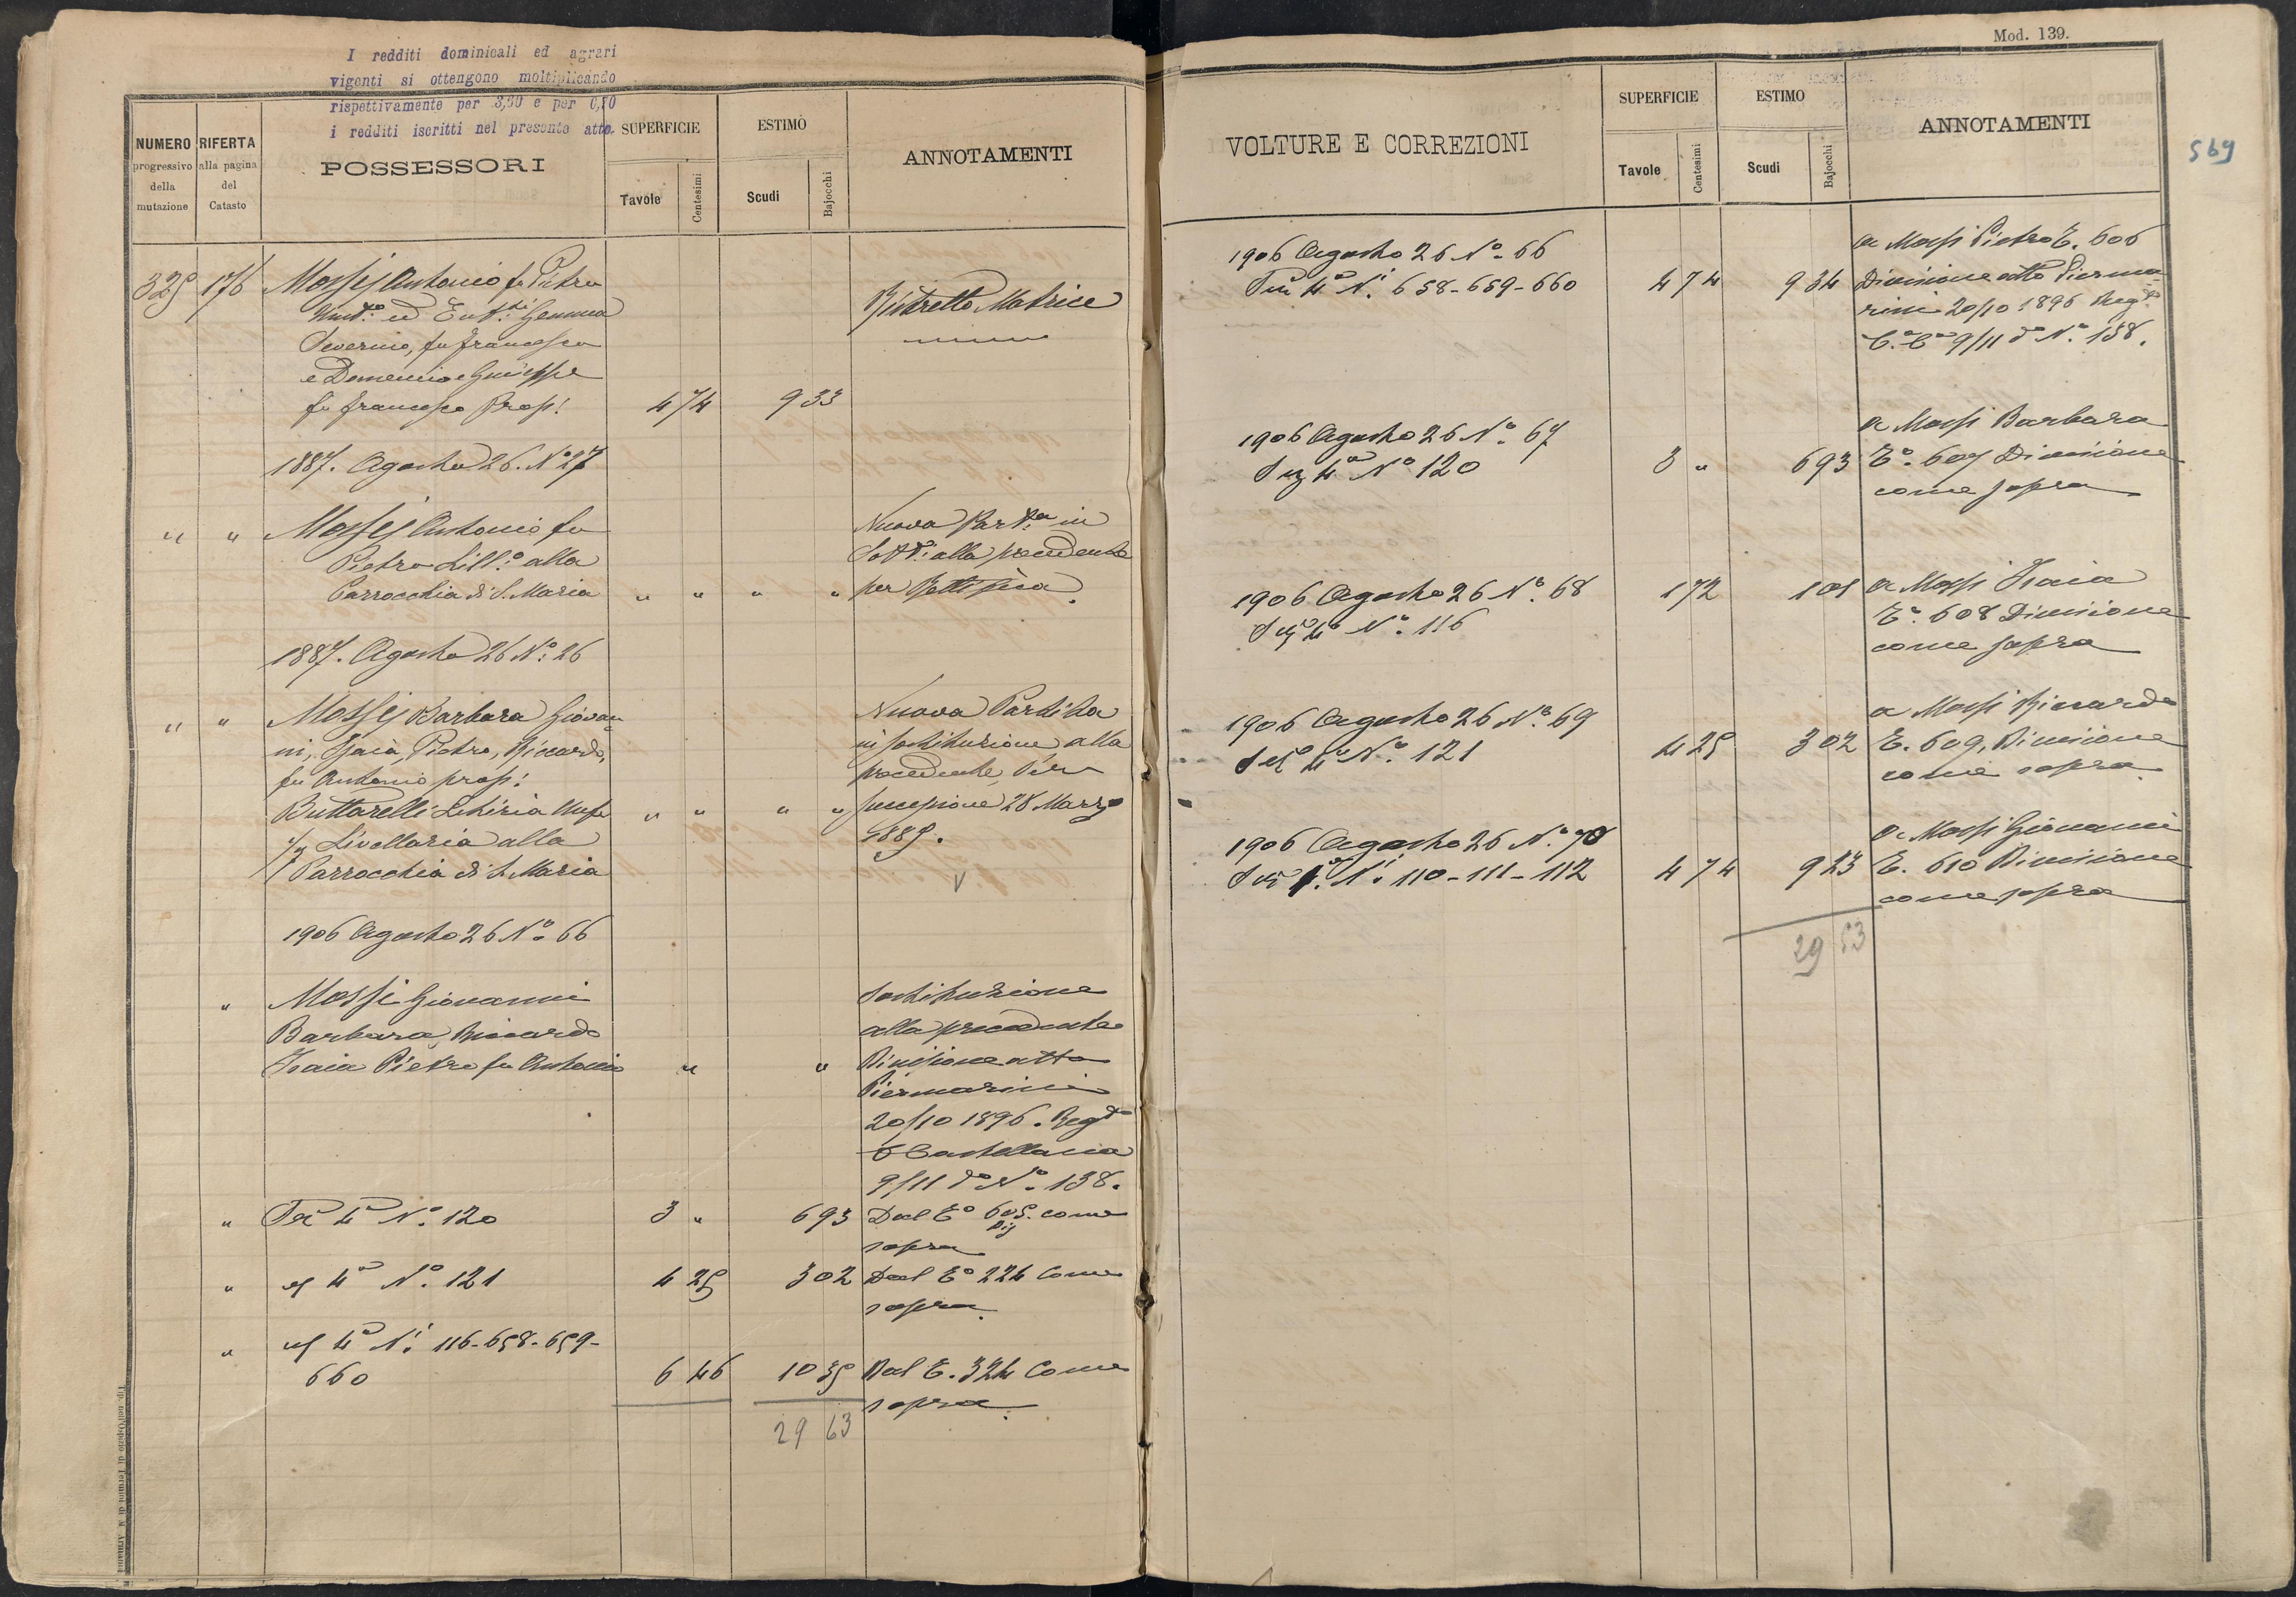 I redditi dominicali ed agrari
vigenti si ottengono moltiplicando
rispettivamente per 3,60 e per 6,50
i redditi iscritti nel presente atto.
NUMERO
progressivo
della
mutazione
RIFERTA
alla pagina
del
Catasto
POSSESSORI
SUPERFICIE
Tavole Centesimi
ESTIMO
Scudi Bajocchi
ANNOTAMENTI
325 176 Mossej Antonio fu Pietro
Severino, fu Francesco
e Domenico e Giuseppe
fu Francesco Prop! 4 74 9 33
Matrice
1887. Agosto 26. No 27
" " Mossej Antonio fu
Pietro Lill.o alla
Parrocchia di S. Maria " " " "
Nuova Part.a in
Sott.i alla precedente
per Rettifica.
1887. Agosto 26 No: 26
" " Mossej Barbara Giovan
ni, Isaia, Pietro, Riccardo,
fu Antonio prop!
Buttarelli Letizia Usufr
Livellaria alla
Parrocchia di S. Maria " " " "
Nuova Partita
in sostituzione alla
precedente, Per
successione 28 Marzo
1889.
V
1906 Agosto 26 No. 66
" Mossi Giovanni
Barbara Riccardo
Isaia Pietro fu Antonio " "
Sostituzione
alla precedente
Divisione atto
Piermarini
20/10 1896. Reg.to
C Castellana
9/11 do No. 138.
" Sez 4a No. 120 3 " 6 93 Dal To 605. come
sopra
" 4a No. 121 4 25 3 02 Dal To 224 Come
sopra.
" 4a Ni 116-658-659-
660 6 46 10 35 Dal T. 324 Come
sopra.
29 63
Mod. 139.
569
VOLTURE E CORREZIONI
SUPERFICIE
Tavole Centesimi
ESTIMO
Scudi Bajocchi
ANNOTAMENTI
1906 Agosto 26 No. 66
Sez 4a Ni. 658-659-660 4 74 9 34
a Mossi Pietro T. 606
Divisione atto Pierma
rini 20/10 1896 Reg.to
C. Ca 9/11 do No. 138.
1906 Agosto 26 No. 67
Sez 4a No 120 3 " 6 93
a Mossi Barbara
To. 607 Divisione
come sopra
1906 Agosto 26 No. 68
Sez 4a No. 116 1 72 1 01
a Mossi Isaia
To. 608 Divisione
come sopra
1906 Agosto 26 No. 69
Sez 4a No. 121 4 25 3 02
a Mossi Riccardo
T. 609, Divisione
come sopra.
1906 Agosto 26 No. 70
Sez 1a. Ni 110-111-112 4 74 9 23
a Mossi Giovanni
T. 610 Divisione
come sopra
29 53